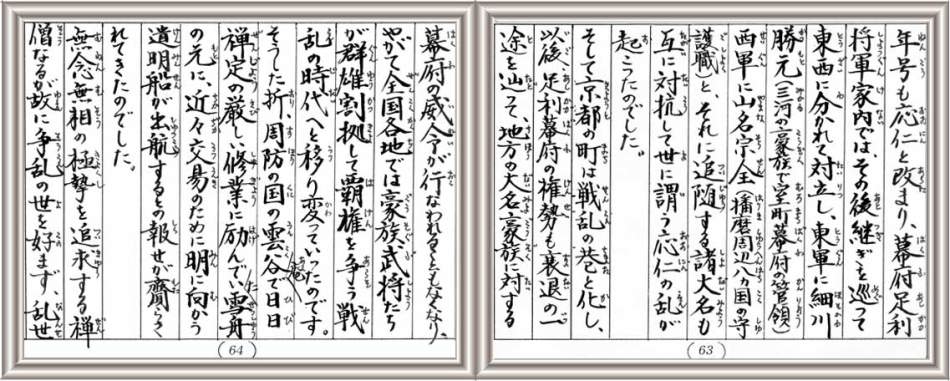 年号も応仁と改まり、幕府足利
将軍家内では、その後継ぎを巡って
東西に分かれて対立し、東軍に細川
勝元(三河の豪族で室町幕府の管領)
西軍に山名宗全(播磨周辺八カ国の守
護職)と、それに追随する諸大名も
互に対抗して世に謂う応仁の乱が
起こったのでした。
そして京都の町は戦乱の巷と化し、
以後、足利幕府の権勢も衰退の一
途を辿って、地方の大名豪族に対する
(63)
幕府の威令が行なわれることもなくなり、
やがて全国各地では豪族、武将たち
が群雄割拠して覇権を争う戦
乱の時代へと移り変っていったのです。
そうした折、周防の国の雲谷で日日
禅定の厳しい修業に励んでい雪舟
の元に、近々交易のために明に向かう
遣明船が出航するとの報せが齎らさ
れてきたのでした。
無念無相の極勢を追求する禅
僧なるが故に争乱の世を好まず、乱世
(64)